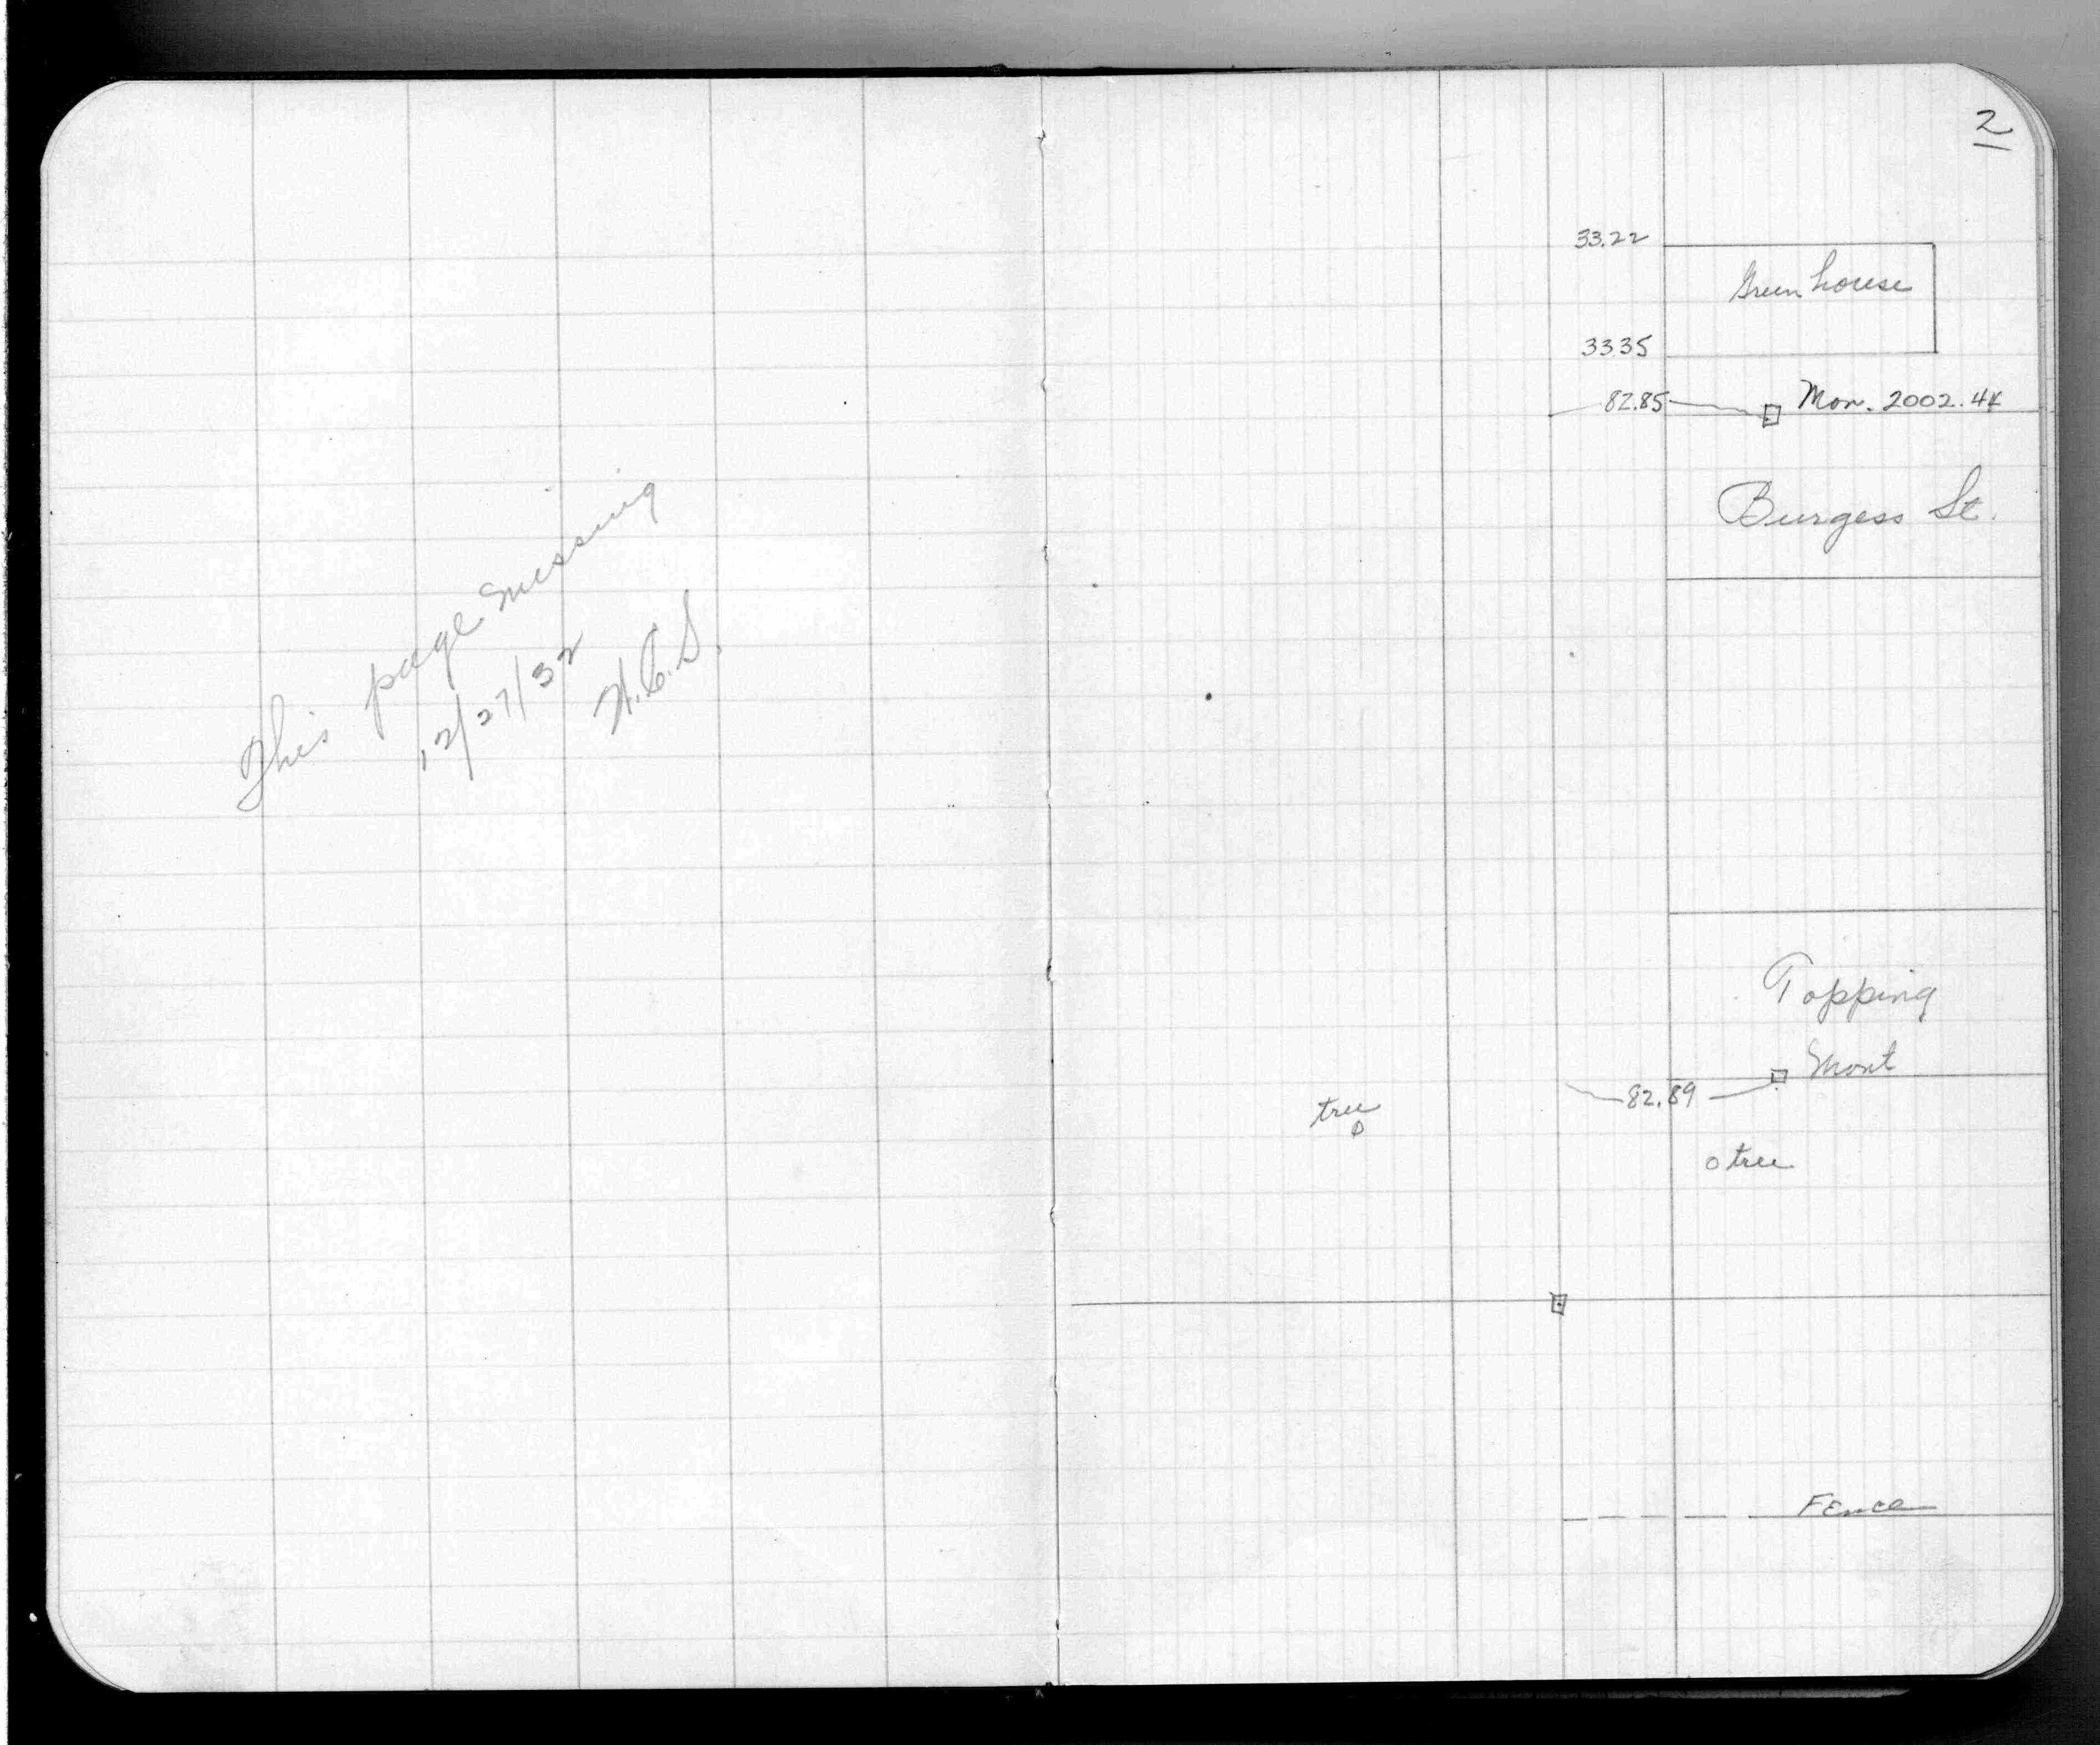 This page missing
12/27/32
H.C.S.
2
33.22
Green house
33.35
82.85
Mon. 2002.44
Burgess St.
Topping
Mont
82.89
tree
o tree
Fence